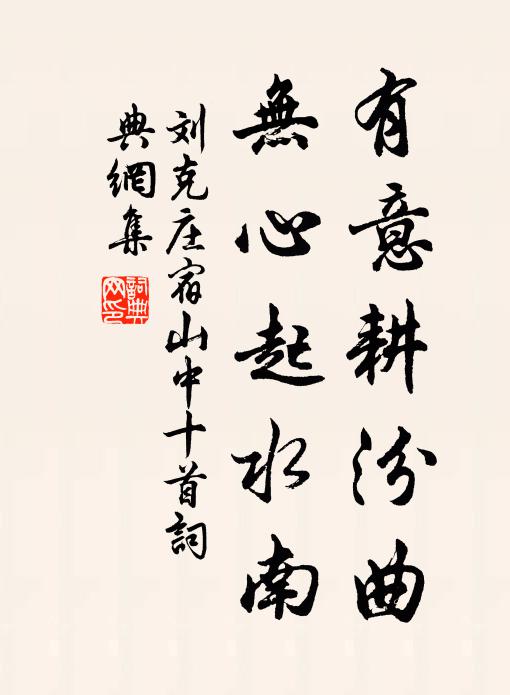 有意耕汾曲
無心起水南
刘克庄宿山中十首詞
典網集
詞典网印